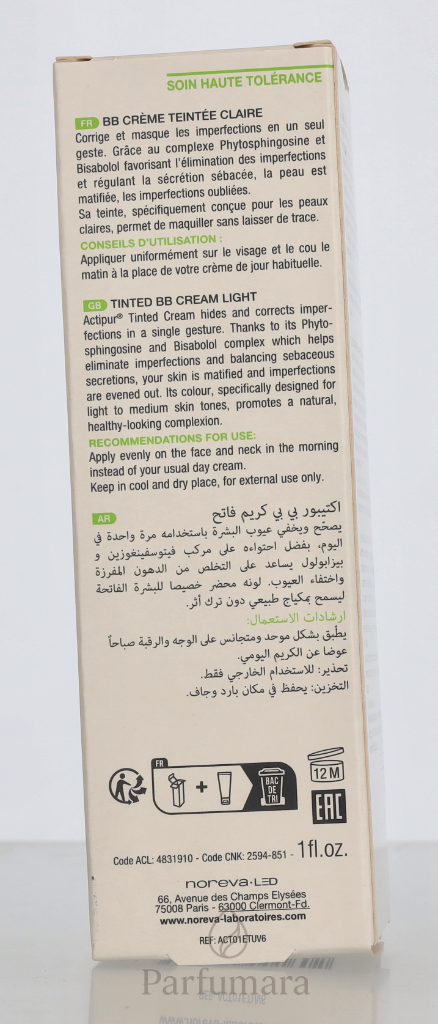 SOIN HAUTE TOLÉRANCE
FR BB CRÈME TEINTÉE CLAIRE
Corrige et masque les imperfections en un seul
geste. Grâce au complexe Phytosphingosine et
Bisabolol favorisant l'élimination des imperfections
et régulant la sécrétion sébacée, la peau est
matifiée, les imperfections oubliées.
Sa teinte, spécifiquement conçue pour les peaux
claires, permet de maquiller sans laisser de trace.
CONSEILS D'UTILISATION :
Appliquer uniformément sur le visage et le cou le
matin à la place de votre crème de jour habituelle.
GB TINTED BB CREAM LIGHT
Actipur® Tinted Cream hides and corrects imper-
fections in a single gesture. Thanks to its Phyto-
sphingosine and Bisabolol complex which helps
eliminate imperfections and balancing sebaceous
secretions, your skin is matified and imperfections
are evened out. Its colour, specifically designed for
light to medium skin tones, promotes a natural,
healthy-looking complexion.
RECOMMENDATIONS FOR USE:
Apply evenly on the face and neck in the morning
instead of your usual day cream.
Keep in cool and dry place, for external use only.
AR
اكتيبور بي بي كريم فاتح
يصحّح ويخفي عيوب البشرة باستخدامه مرة واحدة في
اليوم، بفضل احتواءه على مركب فيتوسفينغوزين و
بيزابولول يساعد على التخلص من الدهون المفرزة
واختفاء العيوب. لونه محضر خصيصا للبشرة الفاتحة
ليسمح بمكياج طبيعي دون ترك أثر.
ارشادات الاستعمال:
يطبق بشكل موحد ومتجانس على الوجه والرقبة صباحاً
عوضا عن الكريم اليومي.
تحذير: للاستخدام الخارجي فقط.
التخزين: يحفظ في مكان بارد وجاف.
FR
+
BAC
DE
TRI
12 M
EAC
Code ACL: 4831910 - Code CNK: 2594-851 - 1fl.oz.
noreva-LED
66, Avenue des Champs Elysées
75008 Paris - 63000 Clermont-Fd.
www.noreva-laboratoires.com
REF: ACT01ETUV6
Parfumara